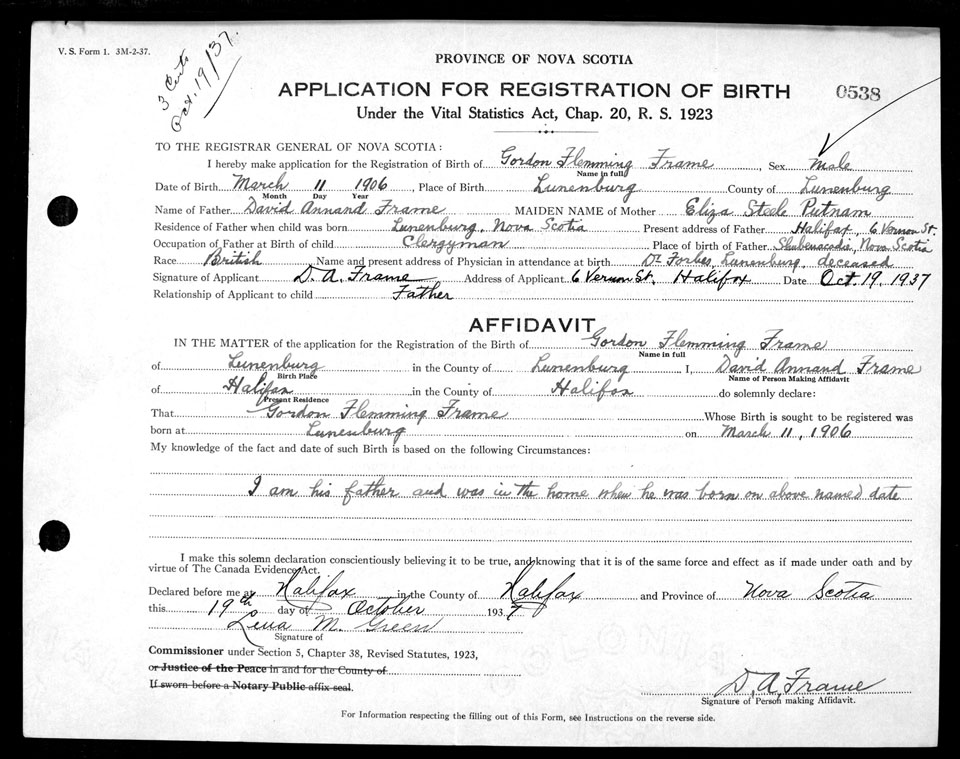 V. S. Form 1. 3M-2-37.
3 Cents
Oct. 19/37.
PROVINCE OF NOVA SCOTIA
APPLICATION FOR REGISTRATION OF BIRTH
0538
Under the Vital Statistics Act, Chap. 20, R. S. 1923
TO THE REGISTRAR GENERAL OF NOVA SCOTIA:
I hereby make application for the Registration of Birth of Gordon Flemming Frame, Sex male
Name in full
Date of Birth March 11 1906, Place of Birth Lunenburg County of Lunenburg
Month Day Year
Name of Father David Annand Frame MAIDEN NAME of Mother Eliza Steele Putnam
Residence of Father when child was born Lunenburg, Nova Scotia Present address of Father Halifax, 6 Vernon St.
Occupation of Father at Birth of child Clergyman Place of birth of Father Shubenacadie, Nova Scotia
Race British Name and present address of Physician in attendance at birth Dr Forbes, Lunenburg, deceased
Signature of Applicant D. A. Frame Address of Applicant 6 Vernon St, Halifax Date Oct. 19, 1937
Relationship of Applicant to child Father
AFFIDAVIT
IN THE MATTER of the application for the Registration of the Birth of Gordon Flemming Frame
Name in full
of Lunenburg in the County of Lunenburg I, David Annand Frame
Birth Place Name of Person Making Affidavit
of Halifax in the County of Halifax do solemnly declare:
Present Residence
That Gordon Flemming Frame Whose Birth is sought to be registered was
born at Lunenburg on March 11, 1906
My knowledge of the fact and date of such Birth is based on the following Circumstances:
I am his father and was in the home when he was born on above named date
I make this solemn declaration conscientiously believing it to be true, and knowing that it is of the same force and effect as if made under oath and by
virtue of The Canada Evidence Act.
Declared before me at Halifax in the County of Halifax and Province of Nova Scotia
this 19th day of October 1937
Lena M. Green
Signature of
Commissioner under Section 5, Chapter 38, Revised Statutes, 1923,
or Justice of the Peace in and for the County of
If sworn before a Notary Public affix seal.
D. A. Frame
Signature of Person making Affidavit.
For Information respecting the filling out of this Form, see Instructions on the reverse side.